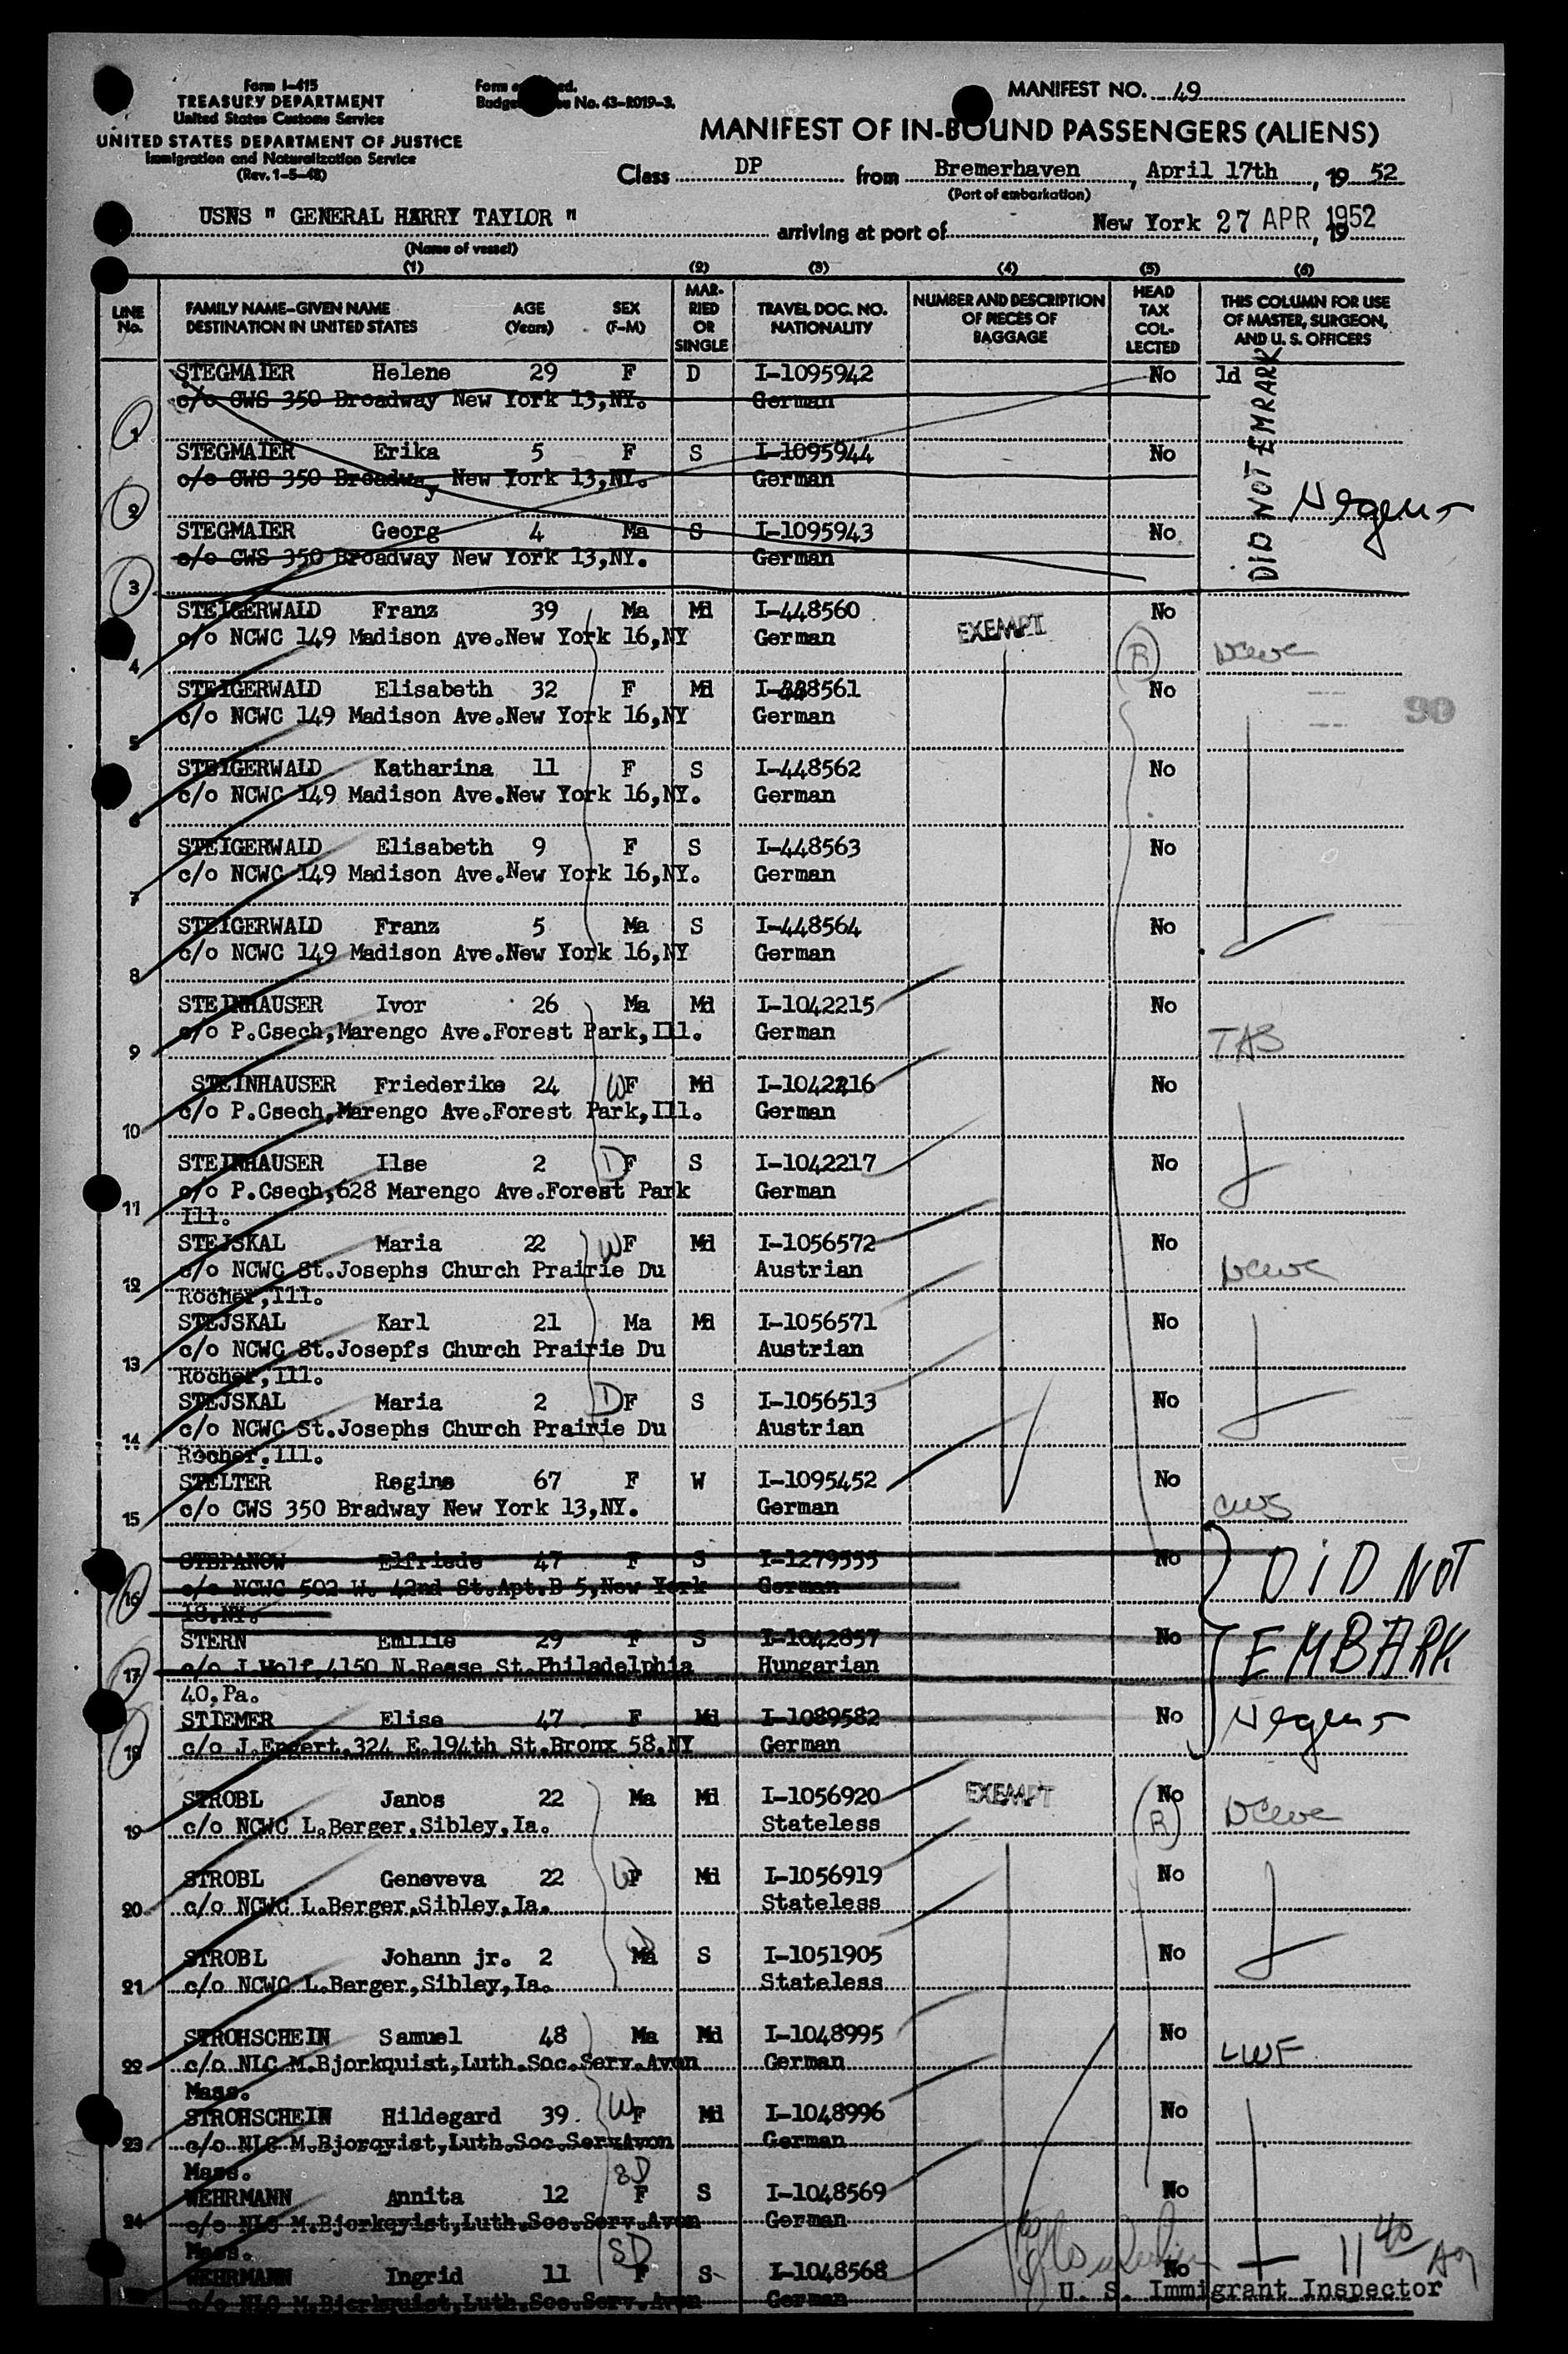 Form I-415
TREASURY DEPARTMENT
United States Customs Service
UNITED STATES DEPARTMENT OF JUSTICE
Immigration and Naturalization Service
(Rev. 1-5-48)
Form ed.
Budge No. 43-R019-3.
MANIFEST NO. 49
MANIFEST OF IN-BOUND PASSENGERS (ALIENS)
Class DP from Bremerhaven, April 17th, 1952
(Port of embarkation)
USNS " GENERAL HARRY TAYLOR " arriving at port of New York 27 APR 1952, 19
(Name of vessel)
(1) (2) (3) (4) (5) (6)
LINE No. FAMILY NAME-GIVEN NAME DESTINATION IN UNITED STATES AGE (Years) SEX (F-M) MARRIED OR SINGLE TRAVEL DOC. NO. NATIONALITY NUMBER AND DESCRIPTION OF PIECES OF BAGGAGE HEAD TAX COLLECTED THIS COLUMN FOR USE OF MASTER, SURGEON, AND U. S. OFFICERS
STEGMAIER Helene 29 F D I-1095942 No 1d
c/o CWS 350 Broadway New York 13,NY. German
1
DID NOT EMRARK
STEGMAIER Erika 5 F S I-1095944 No
c/o CWS 350 Broadway New York 13,NY. German
2
STEGMAIER Georg 4 Ma S I-1095943 No
c/o CWS 350 Broadway New York 13,NY. German
3
STEIGERWALD Franz 39 Ma Md I-448560 EXEMPT No
c/o NCWC 149 Madison Ave.New York 16,NY German R NCWC
4
STEIGERWALD Elisabeth 32 F Md I-448561 No
c/o NCWC 149 Madison Ave.New York 16,NY German 90
5
STEIGERWALD Katharina 11 F S I-448562 No
c/o NCWC 149 Madison Ave.New York 16,NY. German
6
STEIGERWALD Elisabeth 9 F S I-448563 No
c/o NCWC 149 Madison Ave.New York 16,NY. German
7
STEIGERWALD Franz 5 Ma S I-448564 No
c/o NCWC 149 Madison Ave.New York 16,NY German
8
STEINHAUSER Ivor 26 Ma Md I-1042215 No
c/o P.Csech,Marengo Ave.Forest Park,Ill. German TAS
9
STEINHAUSER Friederike 24 W F Md I-1042216 No
c/o P.Csech,Marengo Ave.Forest Park,Ill. German
10
STEINHAUSER Ilse 2 D F S I-1042217 No
c/o P.Csech,628 Marengo Ave.Forest Park German
11
Ill.
STEJSKAL Maria 22 W F Md I-1056572 No
c/o NCWC St.Josephs Church Prairie Du Austrian NCWC
12
Rocher,Ill.
STEJSKAL Karl 21 Ma Md I-1056571 No
c/o NCWC St.Josepfs Church Prairie Du Austrian
13
Rocher,Ill.
STEJSKAL Maria 2 D F S I-1056513 No
c/o NCWC St.Josephs Church Prairie Du Austrian
14
Rocher.Ill.
STELTER Regine 67 F W I-1095452 No
c/o CWS 350 Bradway New York 13,NY. German CWS
15
STEPANOW Elfriede 47 F S I-1279555 No DID NOT
c/o NCWC 502 W. 42nd St.Apt.B 5,New York German
16
18.NY.
STERN Emilie 29 F S I-1042857 No EMBARK
17 c/o J.Wolf,4150 N.Reese St.Philadelphia Hungarian
40,Pa.
STIEMER Elise 47 F Md I-1089582 No
18 c/o J.Engert,324 E.194th St.Bronx 58,NY German
STROBL Janos 22 Ma Md I-1056920 EXEMPT No
19 c/o NCWC L.Berger,Sibley,Ia. Stateless R NCWC
STROBL Geneveva 22 W F Md I-1056919 No
20 c/o NCWC L.Berger,Sibley,Ia. Stateless
STROBL Johann jr. 2 Ma S I-1051905 No
21 c/o NCWC L.Berger,Sibley,Ia. Stateless
STROHSCHEIN Samuel 48 Ma Md I-1048995 No
22 c/o NLC M.Bjorkquist,Luth.Soc.Serv.Avon German LWF
Mass.
STROHSCHEIN Hildegard 39. W F Md I-1048996 No
23 c/o NLC M.Bjorqvist,Luth.Soc.Serv.Avon German
Mass.
SD
WEHRMANN Annita 12 F S I-1048569 No
24 c/o NLC M.Bjorkqvist,Luth.Soc.Serv.Avon German
Mass.
SD
WEHRMANN Ingrid 11 F S I-1048568 No 11 40 AM
c/o NLC M.Bjorkquist,Luth.Soc.Serv.Avon German
U. S. Immigrant Inspector